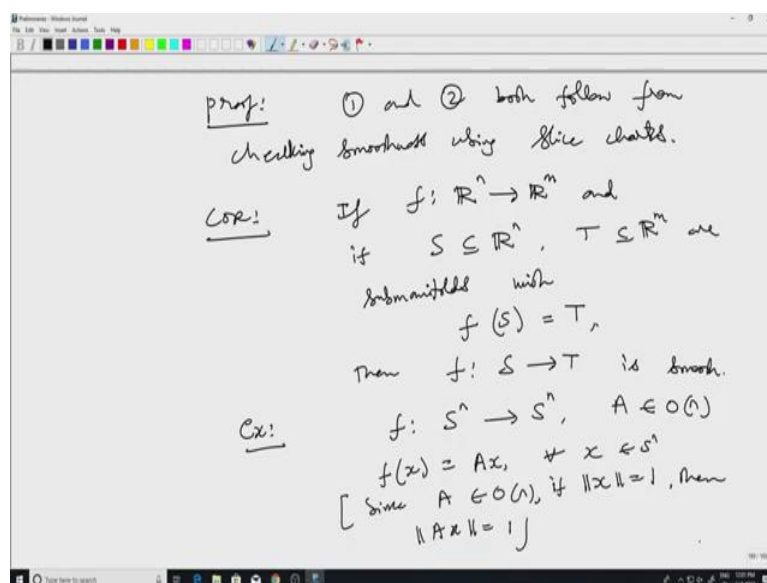 Preliminaries - Windows Journal
File Edit View Insert Actions Tools Help
proof: ① and ② both follow from
checking smoothness using slice charts.
COR: If f: ℝⁿ → ℝᵐ and
if S ⊆ ℝⁿ, T ⊆ ℝᵐ are
submanifolds with
f(S) = T,
Then f: S → T is smooth.
Ex: f: Sⁿ → Sⁿ, A ∈ O(n)
f(x) = Ax, ∀ x ∈ Sⁿ
[Since A ∈ O(n), if ||x|| = 1, then
||Ax|| = 1]
Type here to search